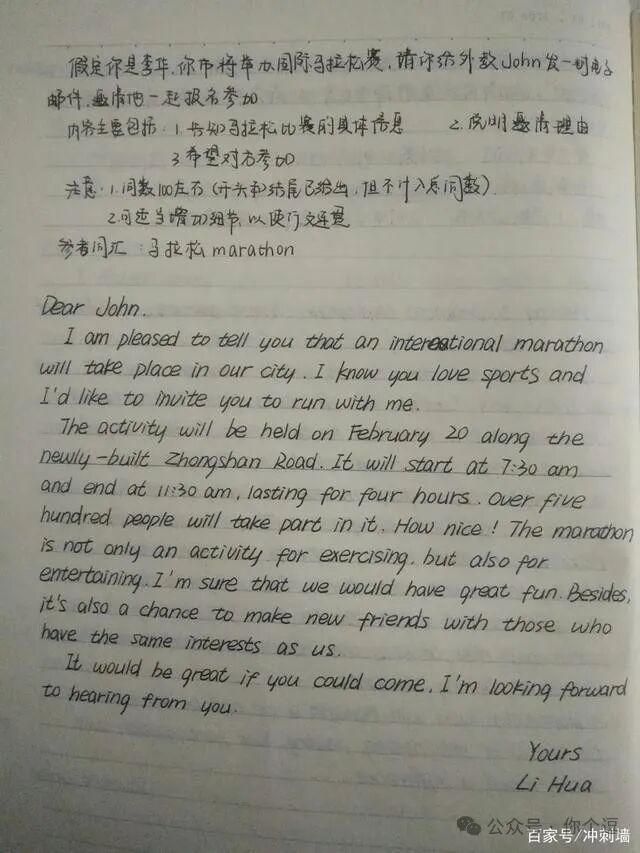 假定你是李华，你市将举办国际马拉松赛，请你给外教John发一封电子
邮件，邀请他一起报名参加
内容主要包括：1.告知马拉松比赛的具体信息 2.说明邀请理由
3.希望对方参加
注意：1.词数100左右（开头和结尾已给出，但不计入总词数）
2.可适当增加细节，以使行文连贯
参考词汇：马拉松marathon
Dear John.
I am pleased to tell you that an international marathon
will take place in our city. I know you love sports and
I'd like to invite you to run with me.
The activity will be held on February 20 along the
newly-built Zhongshan Road. It will start at 7:30 am
and end at 11:30 am, lasting for four hours. Over five
hundred people will take part in it. How nice! The marathon
is not only an activity for exercising, but also for
entertaining. I'm sure that we would have great fun. Besides,
it's also a chance to make new friends with those who
have the same interests as us.
It would be great if you could come. I'm looking forward
to hearing from you.
Yours
Li Hua
公众号·你个逗
百家号/冲刺墙